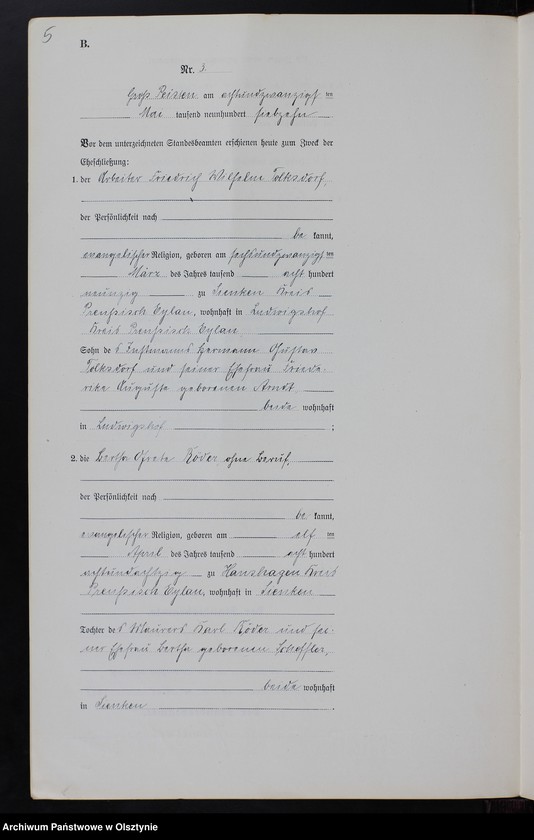 5
B.
Nr. 3.
Groß Peisten am achtundzwanzigsten
Mai tausend neunhundert siebzehn
Vor dem unterzeichneten Standesbeamten erschienen heute zum Zweck der
Eheschließung:
1. der Arbeiter Friedrich Wilhelm Tolksdorf,
der Persönlichkeit nach
be kannt,
evangelischer Religion, geboren am sechsundzwanzigsten
März des Jahres tausend acht hundert
neunzig zu Lienken Kreis
Preußisch Eylau, wohnhaft in Ludwigshof
Kreis Preußisch Eylau
Sohn des Instmanns Hermann Gustav
Tolksdorf und seiner Ehefrau Friede-
rike Auguste geborenen Arndt
beide wohnhaft
in Ludwigshof ;
2. die Bertha Grete Röder ohne Beruf,
der Persönlichkeit nach
be kannt,
evangelischer Religion, geboren am elf ten
April des Jahres tausend acht hundert
achtundachtzig zu Hanshagen Kreis
Preußisch Eylau, wohnhaft in Lienken
Tochter des Maurers Karl Röder und sei-
ner Ehefrau Bertha geborenen
beide wohnhaft
in Lienken .
Archiwum Państwowe w Olsztynie